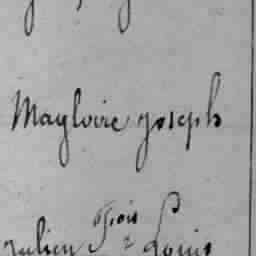 Mayloire joseph
frois
julien & Louis